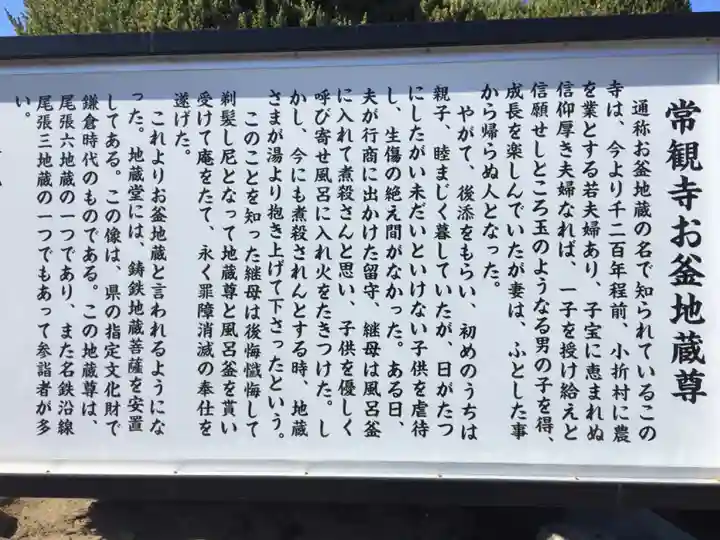 常観寺お釜地蔵尊
通称お釜地蔵の名で知られているこの
寺は、今より千二百年程前、小折村に農
を業とする若夫婦あり、子宝に恵まれぬ
信仰厚き夫婦なれば、一子を授け給えと
信願せしところ玉のようなる男の子を得、
成長を楽しんでいたが妻は、ふとした事
から帰らぬ人となった。
やがて、後添をもらい、初めのうちは
親子、睦まじく暮していたが、日がたつ
にしたがい未だいといけない子供を虐待
し、生傷の絶え間がなかった。ある日、
夫が行商に出かけた留守、継母は風呂釜
に入れて煮殺さんと思い、子供を優しく
呼び寄せ風呂に入れ火をたきつけた。し
かし、今にも煮殺されんとする時、地蔵
さまが湯より抱き上げて下さったという。
このことを知った継母は後悔懺悔して
剃髪し尼となって地蔵尊と風呂釜を貰い
受けて庵をたて、永く罪障消滅の奉仕を
遂げた。
これよりお釜地蔵と言われるようにな
った。地蔵堂には、鋳鉄地蔵菩薩を安置
してある。この像は、県の指定文化財で
鎌倉時代のものである。この地蔵尊は、
尾張六地蔵の一つであり、また名鉄沿線
尾張三地蔵の一つでもあって参詣者が多
い。